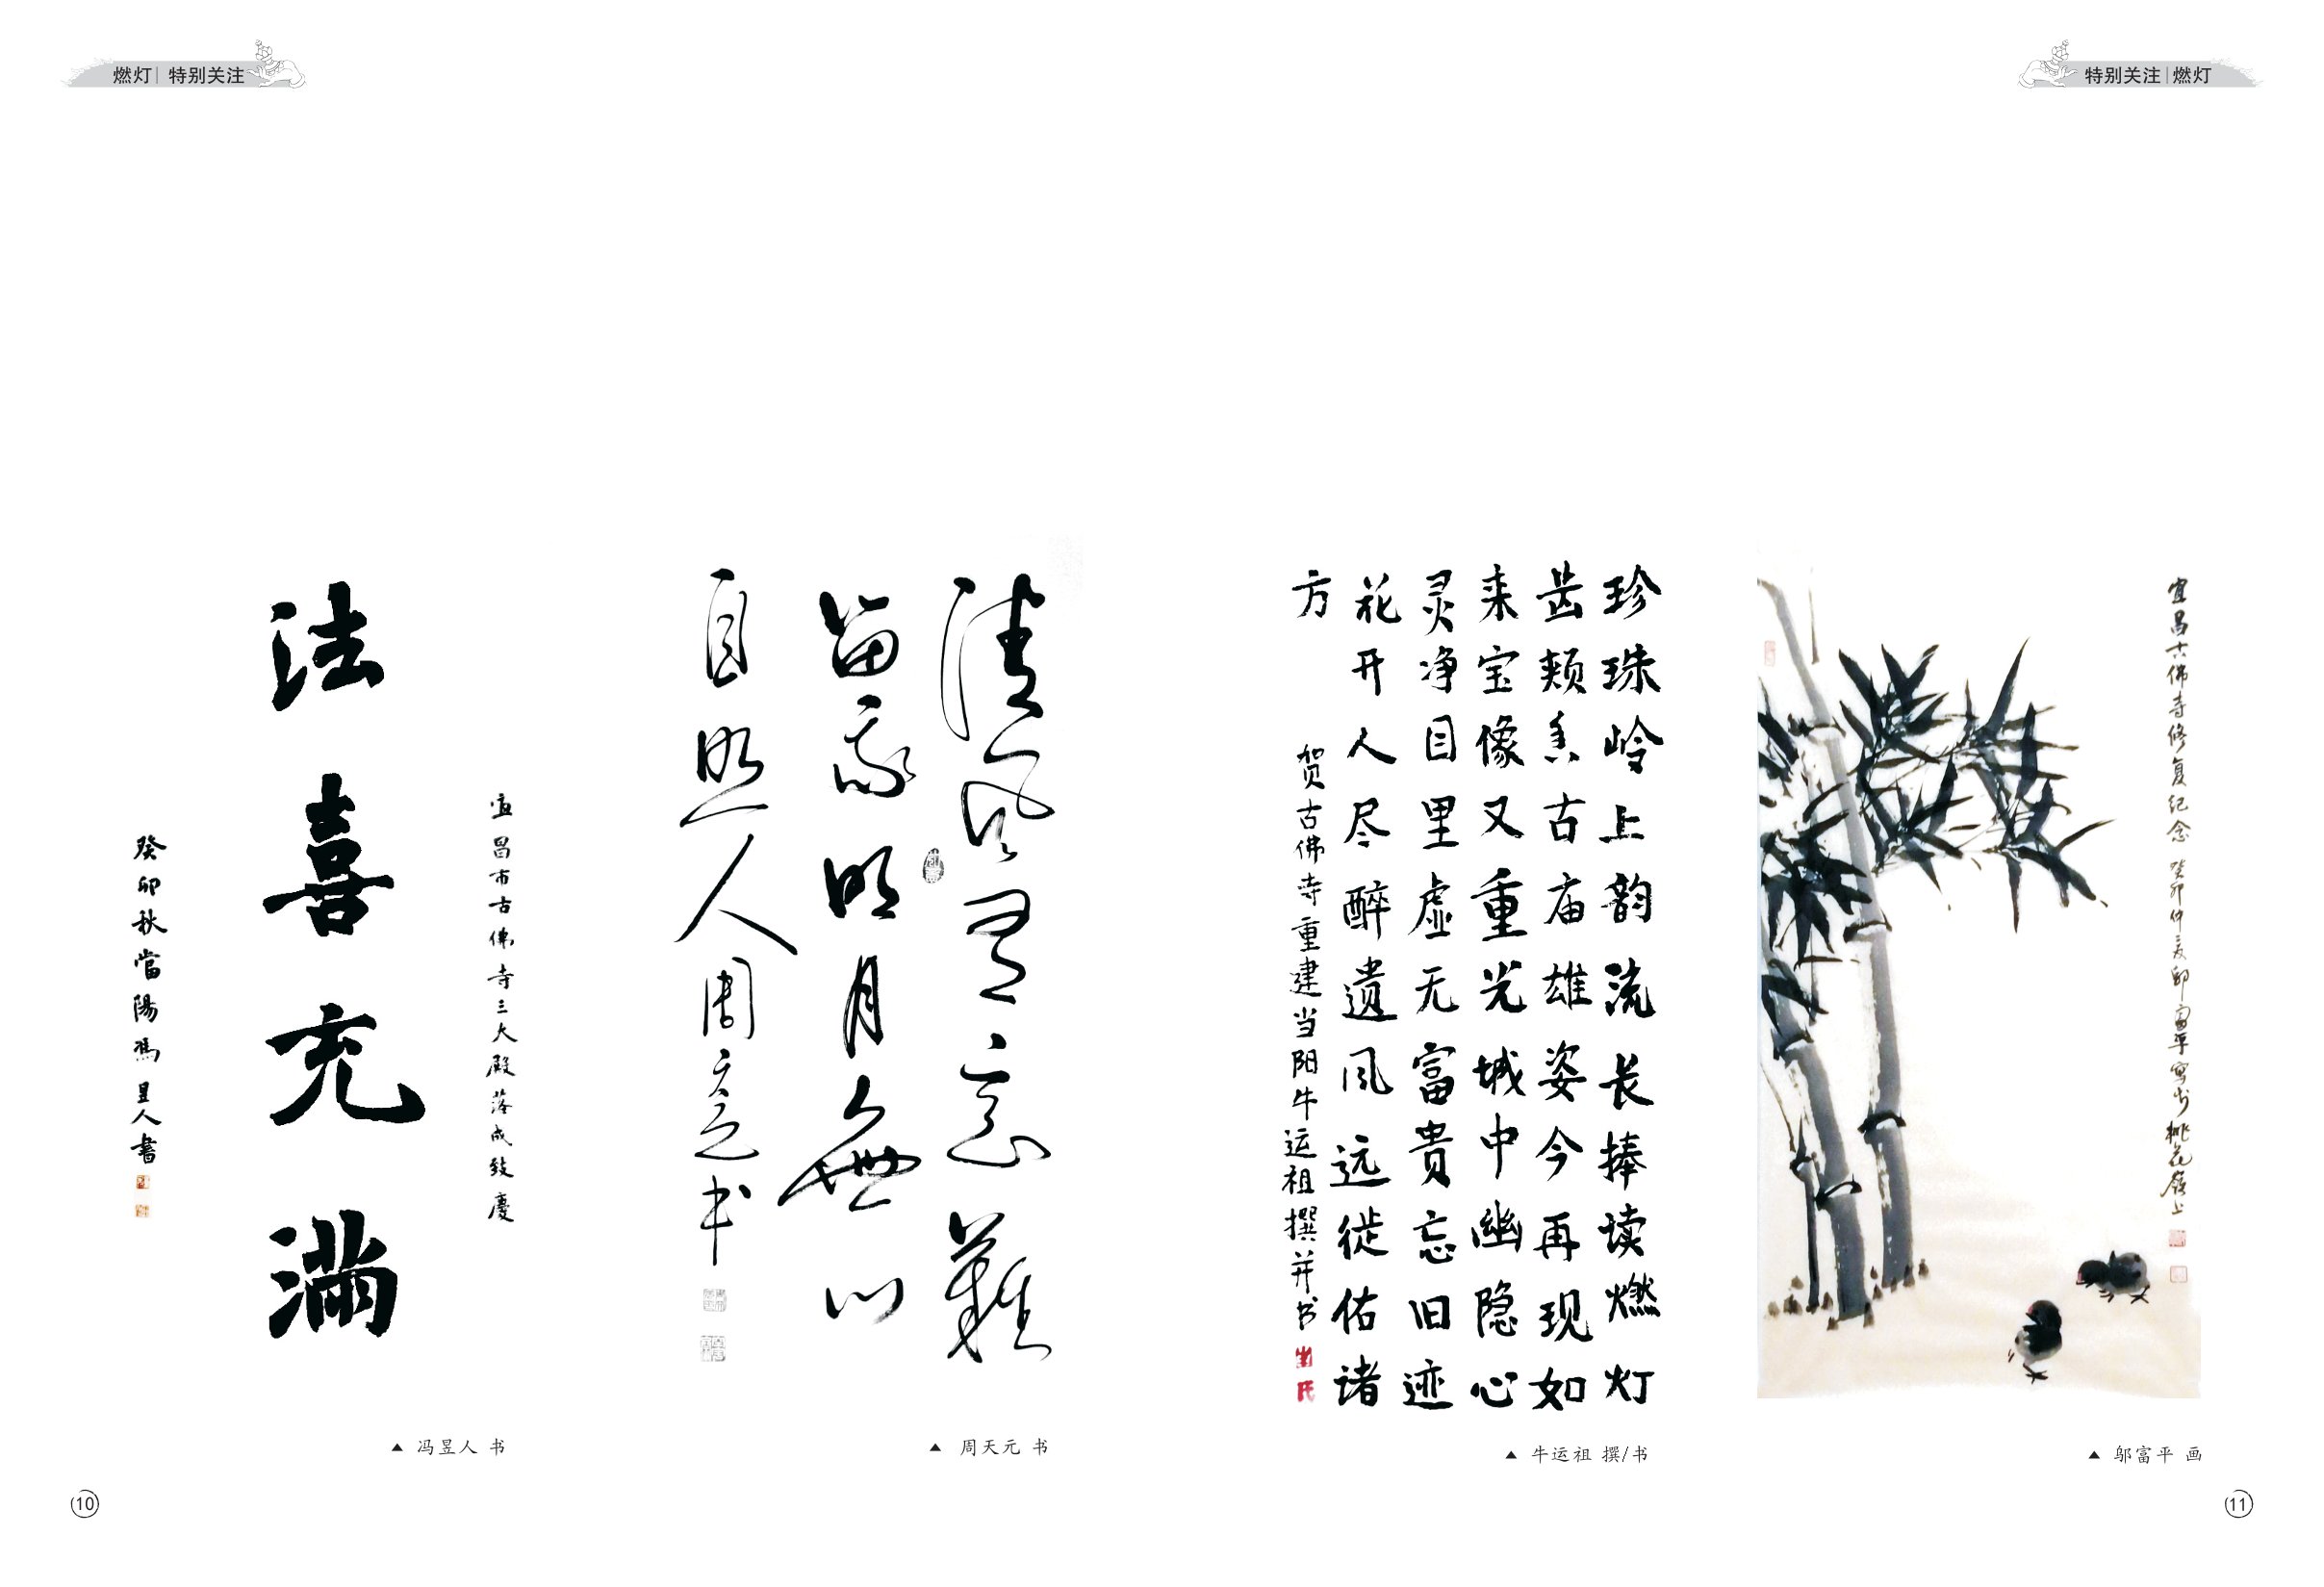 燃灯 | 特别关注
宜昌市古佛寺三大殿落成致慶
法喜充满
癸卯秋當陽馮昱人書
▲ 冯昱人 书
清风
難
留我明月無以
自照人
周天元书
▲ 周天元 书
10
特别关注 | 燃灯
珍珠岭上韵流长捧读燃灯
齿颊香古庙雄姿今再现如
来宝像又重光城中幽隐心
灵净目里虚无富贵忘旧迹
花开人尽醉遗风远从佑诸
方
贺古佛寺重建当阳牛运祖撰并书
牛氏
▲ 牛运祖 撰/书
宜昌古佛寺修复纪念
癸卯仲夏邬富平写於桃花嶺上
▲ 邬富平 画
11